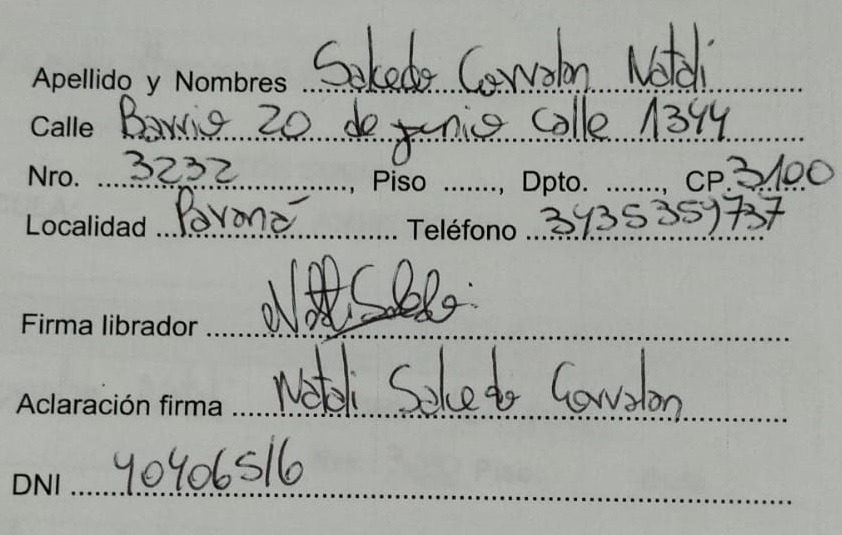 Apellido y Nombres Salcedo Corvalan Natali
Calle Barrio 20 de junio calle 1344
Nro. 3232, Piso ......, Dpto. ......, CP. 3100
Localidad Paraná Teléfono 3435359737
Firma librador Nati Salcedo
Aclaración firma Natali Salcedo Corvalan
DNI 40406516